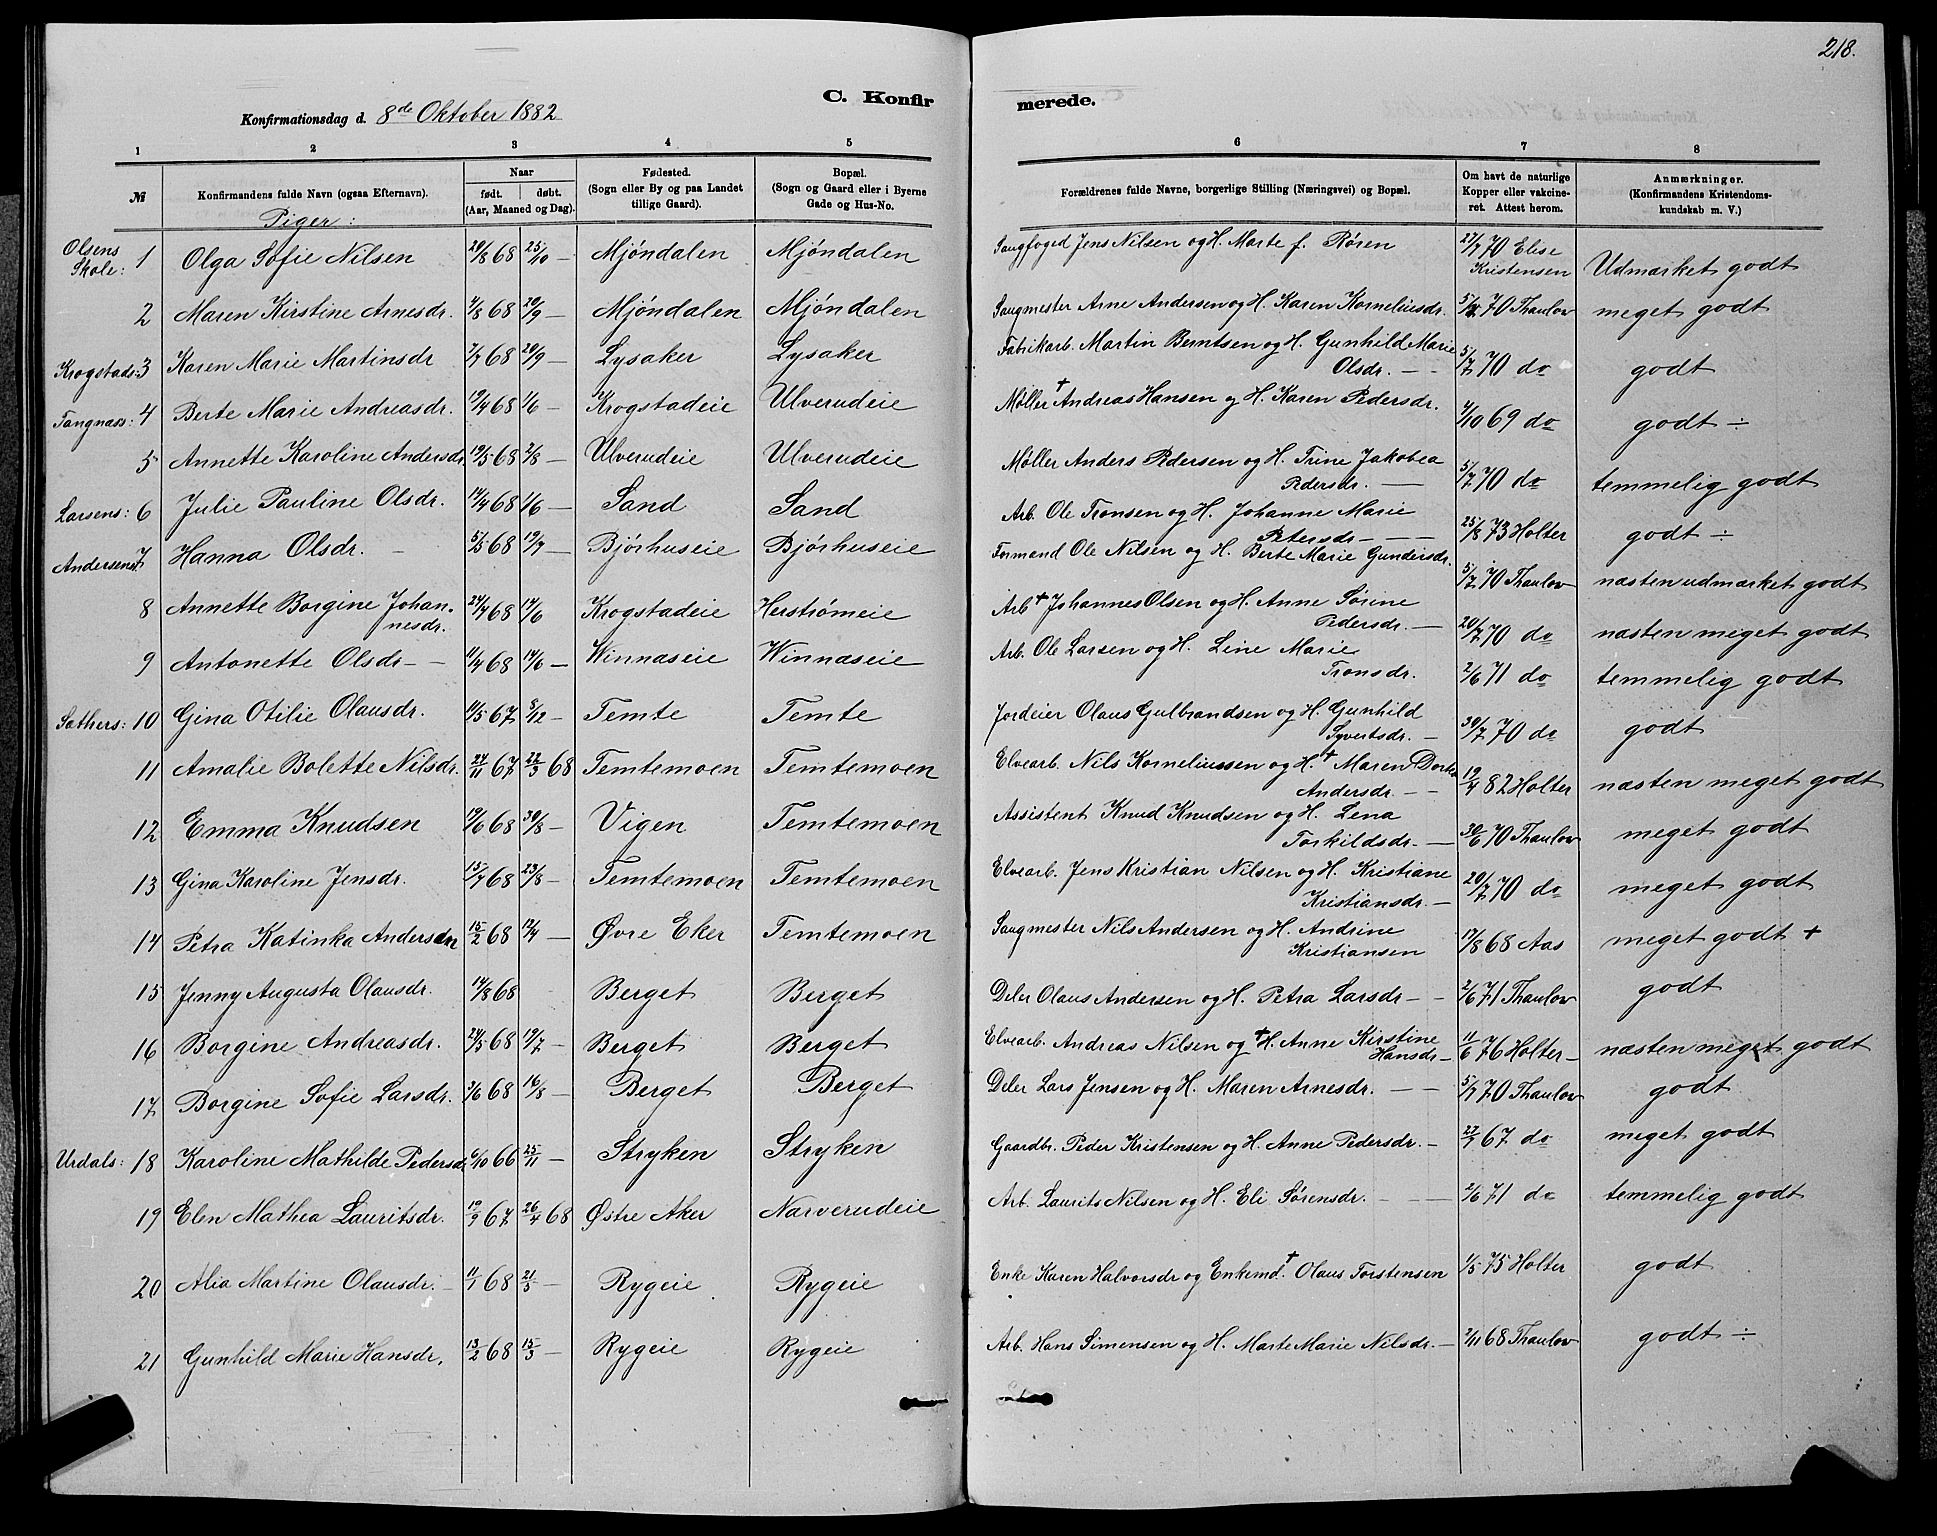 218.
C. Konfirmerede.
Konfirmationsdag d. 8de Oktober 1882
1 2 3 4 5 6 7 8
№ | Konfirmandens fulde Navn (ogsaa Efternavn). | Naar født. døbt. (Aar, Maaned og Dag). | Fødested. (Sogn eller By og paa Landet tillige Gaard). | Bopæl. (Sogn og Gaard eller i Byerne Gade og Hus-No. | Forældrenes fulde Navne, borgerlige Stilling (Næringsvei) og Bopæl. | Om havt de naturlige Kopper eller vakcineret. Attest herom. | Anmærkninger. (Konfirmandens Kristendomskundskab m. V.)
Piger:
Olsens Skole: 1 Olga Sofie Nilsen 29/8 68 25/10 — Mjöndalen Mjöndalen Saugfoged Jens Nilsen og H. Marte f. Røren 27/7 70 Elise Kristensen Udmærket godt
2 Maren Kirstine Arnesdr. 4/8 68 20/9 — Mjöndalen Mjöndalen Saugmester Arne Andersen og H. Karen Korneliusdr. 5/7 70 Thaulow meget godt
Krogstads: 3 Karen Marie Martinsdr 7/7 68 20/9 — Lysaker Lysaker Fabrikarb. Martin Berntsen og H. Gunhild Marie Olsdr. — — 5/7 70 do godt
Tangnæss: 4 Berte Marie Andreasdr. 19/4 68 1/6 — Krogstadeie Ulverudeie Møller † Andreas Hansen og H. Karen Pedersdr. 4/10 69 do godt ÷
5 Annette Karoline Andersdr. 19/5 68 2/8 — Ulverudeie Ulverudeie Møller Anders Pedersen og H. Trine Jakobea Pedersdr. — 5/7 70 do temmelig godt
Larsens: 6 Julie Pauline Olsdr. 14/4 68 1/6 — Sand Sand Arb. Ole Tronsen og H. Johanne Marie Petersdr — — — 25/8 73 Holter godt ÷
Andersens 7 Hanna Olsdr. — 5/5 68 19/7 — Bjórhuseie Bjórhuseie Formand Ole Nilsen og H. Berte Marie Gundersdr. 5/7 70 Thaulow næsten udmærket godt
8 Annette Borgine Johannesdr. 24/4 68 14/6 Krogstadeie Herstrømeie Arb † Johannes Olsen og H. Anne Sørine Pedersdr. — 20/7 70 do næsten meget godt
9 Antonette Olsdr — — 11/4 68 14/6 — Winnæseie Winnæseie Arb. Ole Larsen og H. Line Marie Tronsdr. 2/6 71 do temmelig godt
Sæthers: 10 Gina Otilie Olausdr. 11/5 67 3/12 — Temte Temte Jordeier Olaus Gulbrandsen og H. Gunhild Syvertsdr. — 30/7 70 do godt
11 Amalie Bolette Nilsdr. 24/11 67 22/3 68 Temtemoen Temtemoen Elvearb. Nils Korneliussen og H. † Maren Dorte Andersdr. — — 19/4 82 Holter næsten meget godt
12 Emma Knudsen 19/6 68 30/8 — Vigen Temtemoen Assistent Knud Knudsen og H. Lena Torkildsdr. — 30/6 70 Thaulow meget godt
13 Gina Karoline Jensdr. 15/7 68 23/8 — Temtemoen Temtemoen Elvearb. Jens Kristian Nilsen og H. Kristiane Kristiansdr. — 20/7 70 do meget godt
14 Petra Katinka Andersen 15/2 68 12/4 — Øvre Eker Temtemoen Saugmester Nils Andersen og H. Andrine Kristiansen 17/8 68 Aas meget godt +
15 Jenny Augusta Olausdr. 14/8 68 Berget Berget Deler Olaus Andersen og H. Petra Larsdr — — 2/6 71 Thaulow godt
16 Borgine Andreasdr. 24/5 68 19/7 — Berget Berget Elvearb. Andreas Nilsen og † H. Anne Kirstine Hansdr — 11/6 76 Holter — næsten meget godt
17 Borgine Sofie Larsdr. 3/6 68 16/8 — Berget Berget Deler Lars Jensen og H. Maren Arnesdr. — — 5/7 70 Thaulow godt
Urdals: 18 Karoline Mathilde Pedersdr 6/10 66 25/11 — Stryken Stryken Gaardbr. Peder Kristensen og H. Anne Pedersdr. — 22/7 67 do meget godt
19 Elen Mathea Lauritsdr. 12/9 67 26/4 68 Østre Aker Narverudeie Arb. Laurits Nilsen og H. Eli Sørensdr. — — 2/6 71 do temmelig godt
20 Alia Martine Olausdr. — 11/1 68 21/3 — Rygeie Rygeie Enke Karen Halvorsdr og Enkemd. † Olaus Torstensen 1/5 75 Holter godt
21 Gunhild Marie Hansdr. 13/2 68 15/3 — Rygeie Rygeie Arb. Hans Simensen og H. Marte Marie Nilsdr. — 2/11 68 Thaulow godt ÷